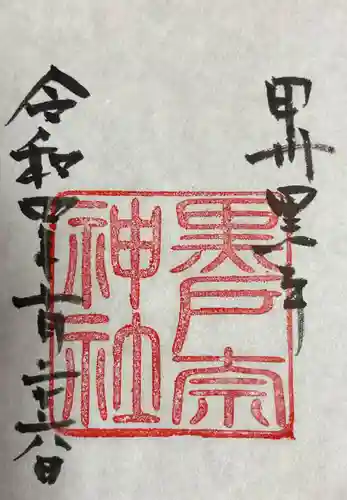 甲州黒平
黒戸奈
神社
令和四年十月二十六日